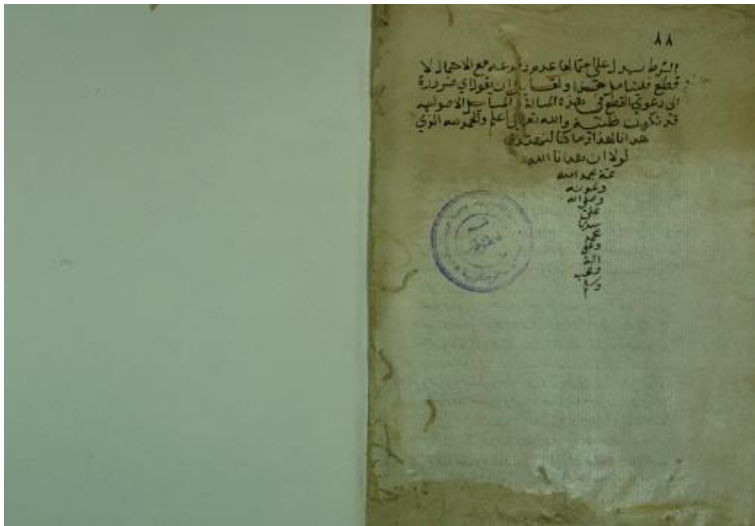 ٨٨
الشرط يدل على احتمالها عدم مع الاحتمال لا
قطع فليتامل هذا ولقائل ان يقول اي ضرورة
الى دعوى القطع في هذه المسالة المسايل الاصولية
قد تكون ظنية والله تعالى اعلم والحمد لله الذي
هدانا لهذا وما كنا لنهتدي
لولا ان هدانا الله
تمة بحمد الله
وعونه
وصلى الله
على
سيدنا
محمد
وعلى
اله
وصحبه
وسلم